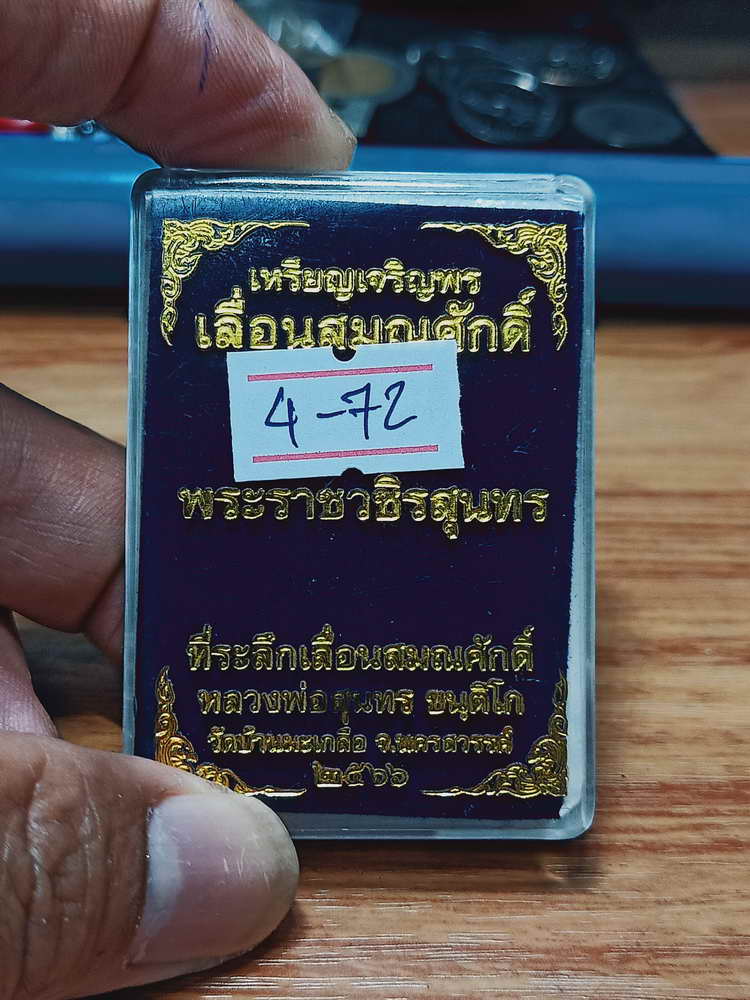 เหรียญเจริญพร
เลื่อนสมณศักดิ์
4-72
พระราชวชิรสุนทร
ที่ระลึกเลื่อนสมณศักดิ์
หลวงพ่อสุนทร ขนฺติโก
วัดบ้านมะเกลือ จ.นครสวรรค์
๒๕๖๖